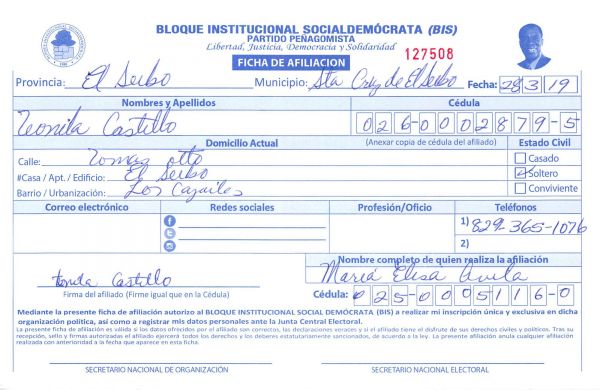 BLOQUE INSTITUCIONAL SOCIALDEMÓCRATA (BIS)
PARTIDO PEÑAGOMISTA
Libertad, Justicia, Democracia y Solidaridad
127508
FICHA DE AFILIACION
Provincia: El Seibo Municipio: Sta Cruz de El Seibo Fecha: 28/3/19
Nombres y Apellidos Cédula
Castillo 026-0002879-5
Domicilio Actual (Anexar copia de cédula del afiliado) Estado Civil
Calle: Tomas otto Casado
#Casa / Apt. / Edificio: El Seibo Soltero
Barrio / Urbanización: Los Conviviente
Correo electrónico Redes sociales Profesión/Oficio Teléfonos
1) 829-365-1076
2)
Nombre completo de quien realiza la afiliación
Castillo Maria Elisa Avila
Firma del afiliado (Firme igual que en la Cédula) Cédula: 025-0005116-0
Mediante la presente ficha de afiliación autorizo al BLOQUE INSTITUCIONAL SOCIAL DEMÓCRATA (BIS) a realizar mi inscripción única y exclusiva en dicha
organización política, así como a registrar mis datos personales ante la Junta Central Electoral.
La presente ficha de afiliación es válida si los datos ofrecidos por el afiliado son correctos, las declaraciones veraces y si el afiliado tiene el disfrute de sus derechos civiles y políticos. Tras su
recepción, sello y firmas autorizadas el afiliado ejercerá todos los derechos y los deberes estatutariamente sancionados, de acuerdo a la ley. La presente afiliación anula cualquier afiliación
realizada con anterioridad a la fecha que aparece en esta ficha.
SECRETARIO NACIONAL DE ORGANIZACIÓN SECRETARIO NACIONAL ELECTORAL